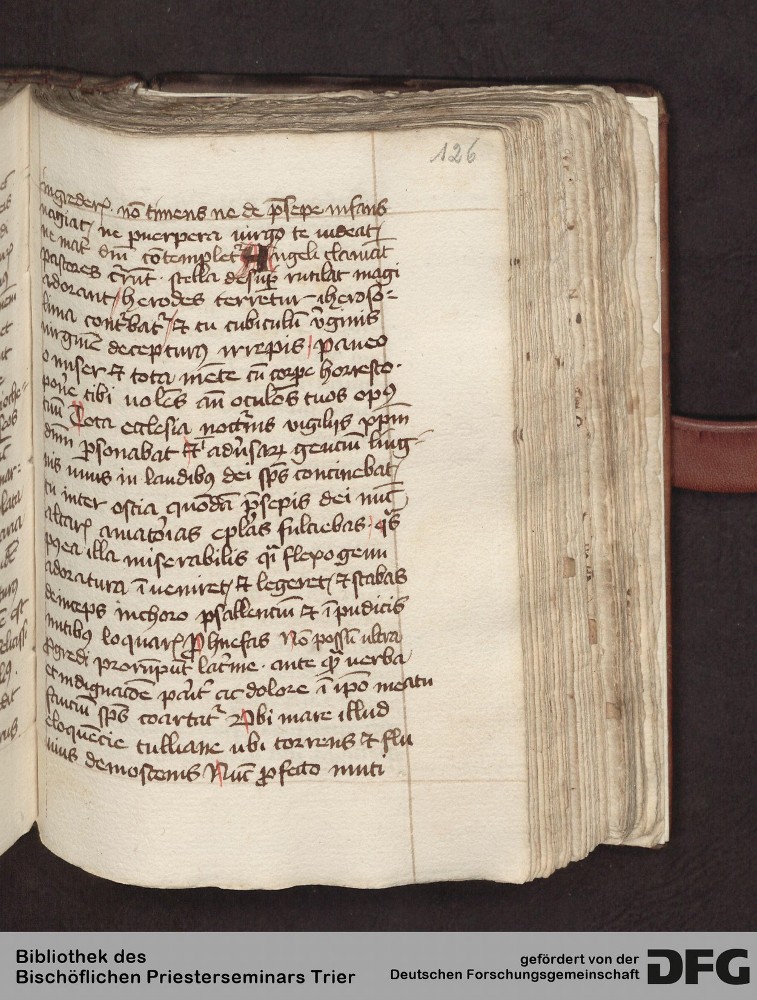 126
ingrederꝭ · nō timens ne de p̄sepe infans
vagiat / ne puerpera virgo te videat /
ne mat̄ dn̄i cōtemplet᷑ Angeli clamāt
pastores c̄rūt · stella desup̱ rutilat magi
adorant / herodes terretur · iheroso=
lima contᵉbat᷑ / ⁊ tu cubiculū v̄ginis
virginē decepturꝰ irrepis / paueo
miser ⁊ tota mēte cū corpe horresco ·
pon̄e tibi volēs an̄ oculos tuos opꝰ
tuū Tota ecclesia noct̄nis vigilijs xp̄m
dn̄m p̱sonabat ⁊ ī adūsaꝝ gentiū ling-
uis vnus in laudibꝰ dei sp̄s continebat /
tu inter ostia quōdā p̄sepis dei nūc
altarꝭ amatorias ep̄las fulciebas · q̄s
pꝰea illa miserabilis q̄i flexo genu
adoratura īueniret / ⁊ legeret / ⁊ stabas
deinceps inchoro psallentiū ⁊ īpudicis
nutibꝰ loquarꝭ ꝓh nefas Nō possū vltra
ꝓgredi prorūpūt lac̄me · ante q̄ꝫ verba
et indignacōe parit̄ ac dolore ī ip̄o meatu
fauciū sp̄s coartat᷑ Vbi mare illud
eloquēcie tulliane vbi torrens ⁊ flu
uius demostenis Nūc ꝓfecto muti
Bibliothek des
Bischöflichen Priesterseminars Trier
gefördert von der
Deutschen Forschungsgemeinschaft
DFG